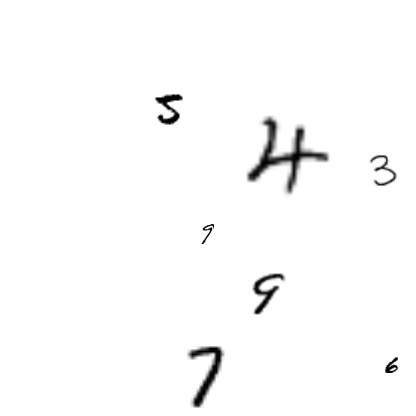 5
4
3
9
9
7
6